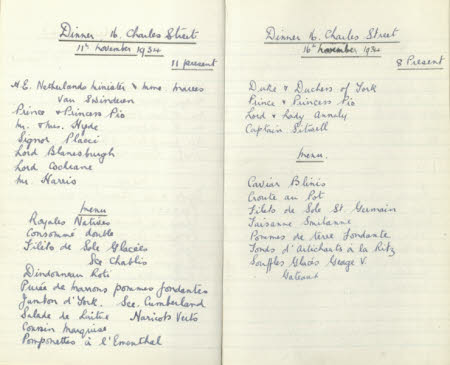 Dinner 16. Charles Street
11th November 1934
11 present
H.E. Netherlands Minister & Mme. Marees
Van Swinderen
Prince & Princess Pio
Mr. & Mrs. Hyde
Signor
Lord Blanesburgh
Lord Cochrane
Mr. Harris
Menu
Royales Natives
Consommé double
Filets de Sole Glacées
Sce Chablis
Dindonneau Roti
Purée de marrons pommes fondantes
Jambon d'York. Sce. Cumberland
Salade de Laitue Haricots Verts
Coussin Marquise
Pomponettes à l'Emmenthal
Dinner 16. Charles Street
16th November 1934
8 Present
Duke & Duchess of York
Prince & Princess Pio
Lord & Lady Annaly
Captain Sitwell
Menu.
Caviar Blinis
Croute au Pot
Filets de Sole St. Germain
Faisanne Smitanne
Pommes de terre fondante
Fonds d'Artichauts à la Ritz
Souffles Glacés George V.
Gateaux